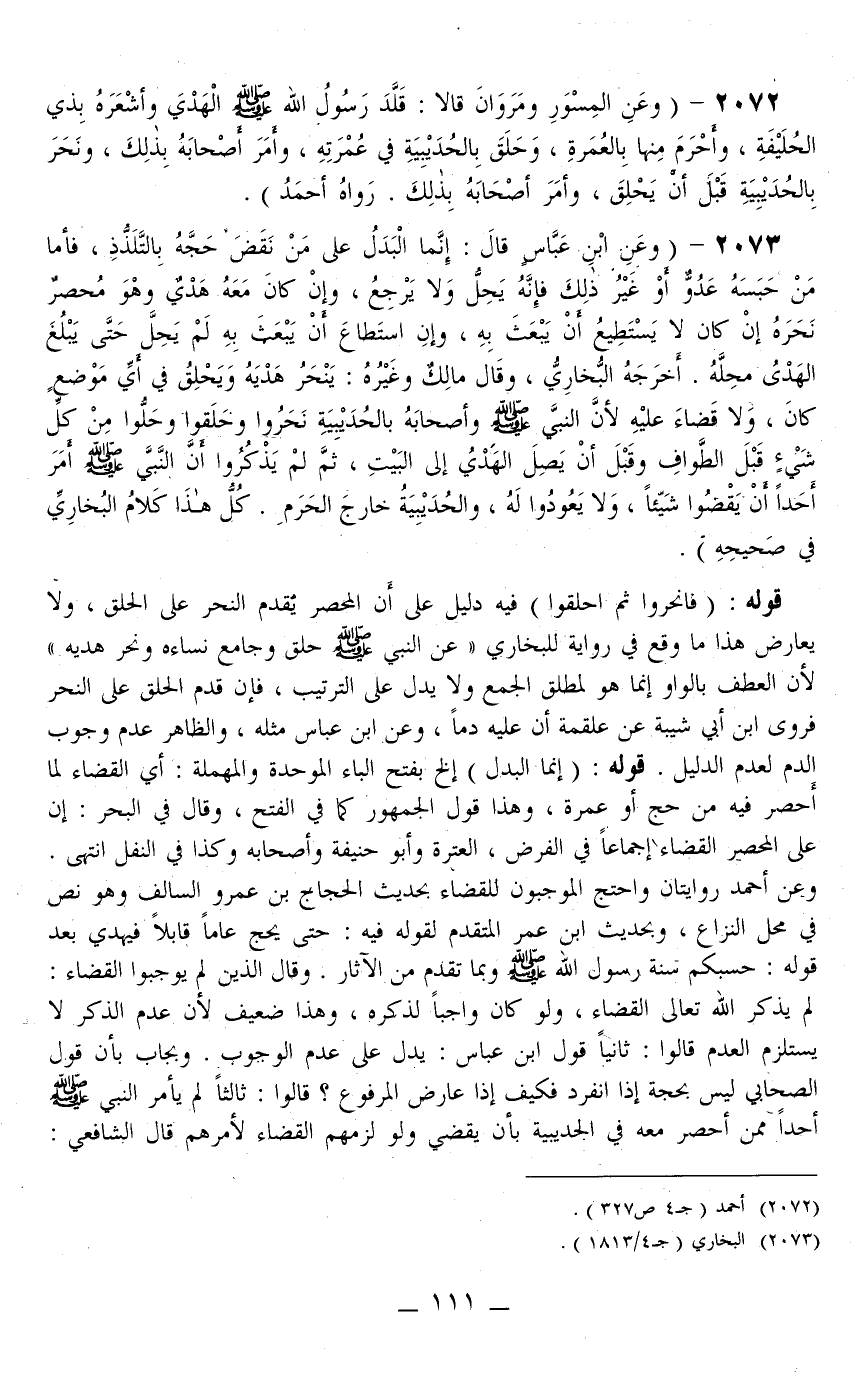 ٢٠٧٢ – ( وعَنِ المِسْوَرِ ومَرَوَانَ قالا : قَلَّدَ رَسُولُ الله ﷺ الْهَدْيَ وأشْعَرَهُ بِذي
الحُلَيْفَةِ ، وأَحْرَمَ مِنها بِالعُمَرةِ ، وَحَلَقَ بِالحُدَيْبِيَةِ في عُمْرَتِهِ ، وأمَرَ أَصْحابَهُ بِذٰلِكَ ، ونَحَرَ
بِالحُدَيْبِيَةِ قَبْلَ أنْ يَحْلِقَ ، وأمَرَ أصْحَابَهُ بِذٰلِكَ . رَواهُ أحمَدُ ) .
٢٠٧٣ – ( وعَنِ ابْنِ عَبَّاسٍ قالَ : إنَّما الْبَدَلُ على مَنْ نَقَضَ حَجَّهُ بِالتَّلَذُّذِ ، فأما
مَنْ حَبَسَهُ عَدُوٌّ أَوْ غَيْرُ ذٰلِكَ فإنَّهُ يَحِلُّ وَلا يَرْجِعُ ، وإنْ كانَ مَعَهُ هَدْيٌ وهْوَ مُحصرٌ
نَحَرَهُ إنْ كان لا يَسْتَطِيعُ أَنْ يَبْعَثَ بِهِ ، وإنِ استَطاعَ أَنْ يَبْعَثَ بِهِ لَمْ يَحِلَّ حَتَّى يَبْلُغَ
الهَدْىُ محِلَّهُ . أَخرَجَهُ البُخاريُّ ، وقَال مالِكٌ وغَيْرُهُ : يَنْحَرُ هَدْيَهُ وَيَحْلِقُ في أَيِّ مَوْضعٍ
كانَ ، وَلا قَضاءَ عليْهِ لأنَّ النبيَّ ﷺ وأصحابَهُ بالحُدَيْبِيَةِ نَحَرُوا وحَلَقوا وحَلُّوا مِنْ كلِّ
شَيْءٍ قَبْلَ الطَّوافِ وقَبْلَ أنْ يَصِلَ الهَدْيُ إلى البَيْتِ ، ثمَّ لمْ يَذْكُرُوا أَنَّ النَّبيَّ ﷺ أَمَرَ
أَحَداً أَنْ يَقْضُوا شَيْئاً ، وَلا يَعُودُوا لَهُ ، والحُدَيْبِيَةُ خارجَ الحَرَمِ . كُلُّ هـٰذَا كَلامُ البُخاريِّ
في صَحيحِهِ ) .
قوله : ( فانحروا ثم احلقوا ) فيه دليل على أَن المحصر يُقدم النحر على الحلق ، ولا
يعارض هذا ما وقع في رواية للبخاري « عن النبي ﷺ حلق وجامع نساءه ونحر هديه »
لأن العطف بالواو إنما هو لمطلق الجمع ولا يدل على الترتيب ، فإن قدم الحلق على النحر
فروى ابن أبي شيبة عن علقمة أن عليه دماً ، وعن ابن عباس مثله ، والظاهر عدم وجوب
الدم لعدم الدليل . قوله : ( إنما البدل ) إلخ بفتح الباء الموحدة والمهملة : أي القضاء لما
أُحصر فيه من حج أو عمرة ، وهذا قول الجمهور كما في الفتح ، وقال في البحر : إن
على المحصر القضاء إجماعاً في الفرض ، العترة وأبو حنيفة وأصحابه وكذا في النفل انتهى .
وعن أحمد روايتان واحتج الموجبون للقضاء بحديث الحجاج بن عمرو السالف وهو نص
في محل النزاع ، وبحديث ابن عمر المتقدم لقوله فيه : حتى يحج عاماً قابلاً فيهدي بعد
قوله : حسبكم سنة رسول الله ﷺ وبما تقدم من الآثار . وقال الذين لم يوجبوا القضاء :
لم يذكر الله تعالى القضاء ، ولو كان واجباً لذكره ، وهذا ضعيف لأن عدم الذكر لا
يستلزم العدم قالوا : ثانياً قول ابن عباس : يدل على عدم الوجوب . ويجاب بأن قول
الصحابي ليس بحجة إذا انفرد فكيف إذا عارض المرفوع ؟ قالوا : ثالثاً لم يأمر النبي ﷺ
أحداً ممن أحصر معه في الحديبية بأن يقضي ولو لزمهم القضاء لأمرهم قال الشافعي :
(٢٠٧٢) أحمد ( جـ٤ ص٣٢٧ ) .
(٢٠٧٣) البخاري ( جـ٤/١٨١٣ ) .
– ١١١ –